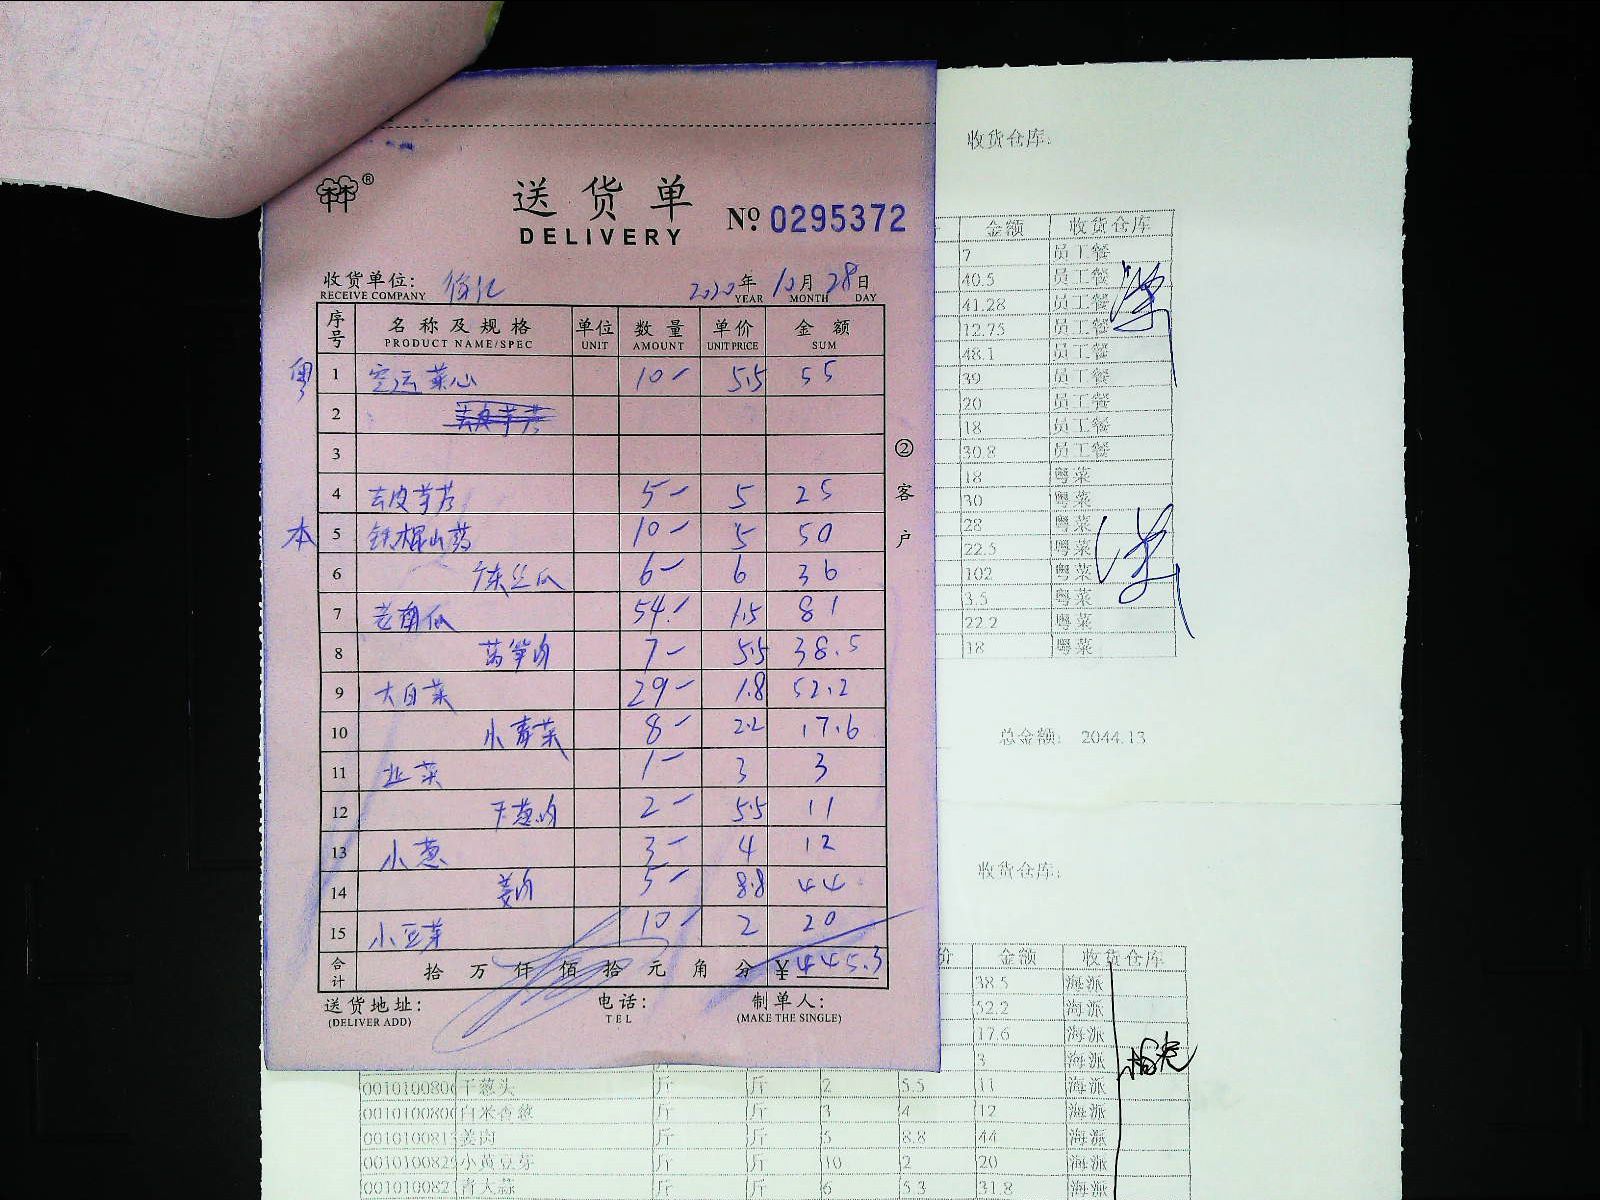 收货仓库:
送货单
DELIVERY
№ 0295372
收货单位: 徐汇 2020年10月28日
RECEIVE COMPANY YEAR MONTH DAY
序号 名称及规格 单位 数量 单价 金额
PRODUCT NAME/SPEC UNIT AMOUNT UNIT PRICE SUM
粤 1 空运菜心 10 5.5 55
2 去皮芋艿
3
4 去皮芋艿 5 5 25
本 5 铁棍山药 10 5 50
6 广东丝瓜 6 6 36
7 老南瓜 54 1.5 81
8 莴笋肉 7 5.5 38.5
9 大白菜 29 1.8 52.2
10 小青菜 8 2.2 17.6
11 韭菜 1 3 3
12 干葱肉 2 5.5 11
13 小葱 3 4 12
14 姜肉 5 8.8 44
15 小豆芽 10 2 20
合计 拾万仟佰拾元角分 ¥445.3
送货地址: 电话: 制单人:
(DELIVER ADD) TEL (MAKE THE SINGLE)
②客户
金额 收货仓库
7 员工餐
40.5 员工餐
41.28 员工餐
12.75 员工餐
48.1 员工餐
39 员工餐
20 员工餐
18 员工餐
30.8 员工餐
18 粤菜
30 粤菜
28 粤菜
22.5 粤菜
102 粤菜
3.5 粤菜
22.2 粤菜
18 粤菜
总金额: 2044.13
收货仓库:
价 金额 收货仓库
38.5 海派
52.2 海派
17.6 海派
3 海派
0010100806 干葱头 斤 斤 2 5.5 11 海派
0010100806 白米香葱 斤 斤 3 4 12 海派
001010081 姜肉 斤 斤 5 8.8 44 海派
001010082 小黄豆芽 斤 斤 10 2 20 海派
001010082 青大蒜 斤 斤 6 5.3 31.8 海派